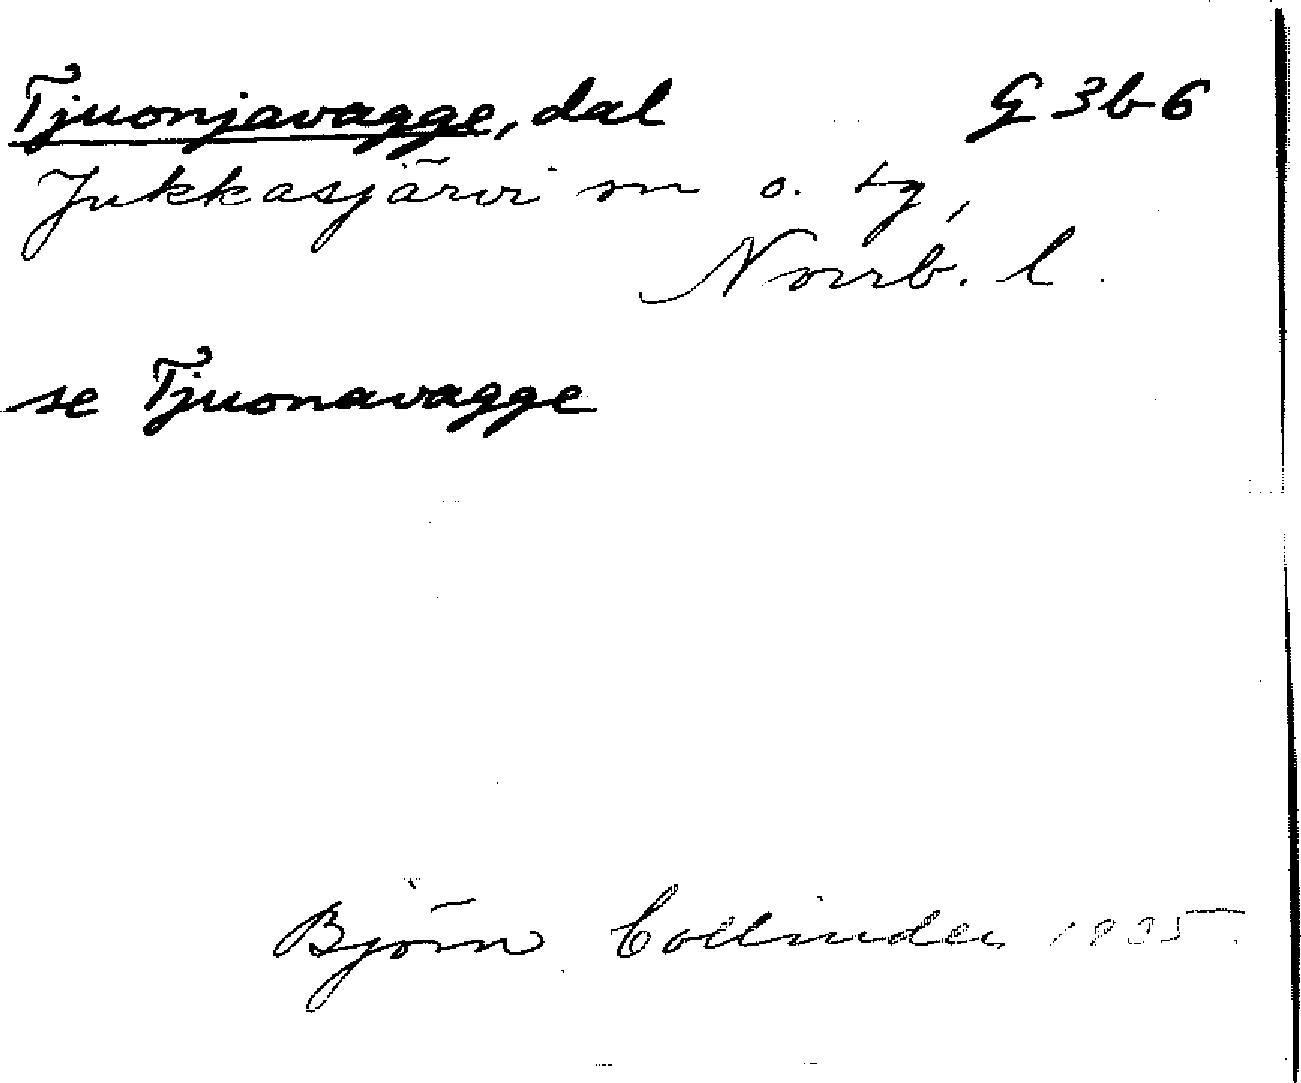 Tjuonjavagge, dal G 3b-6
Jukkasjärvi sn o. tg,
Norrb. l.
se Tjuonavagge
Björn Collinder 1935.